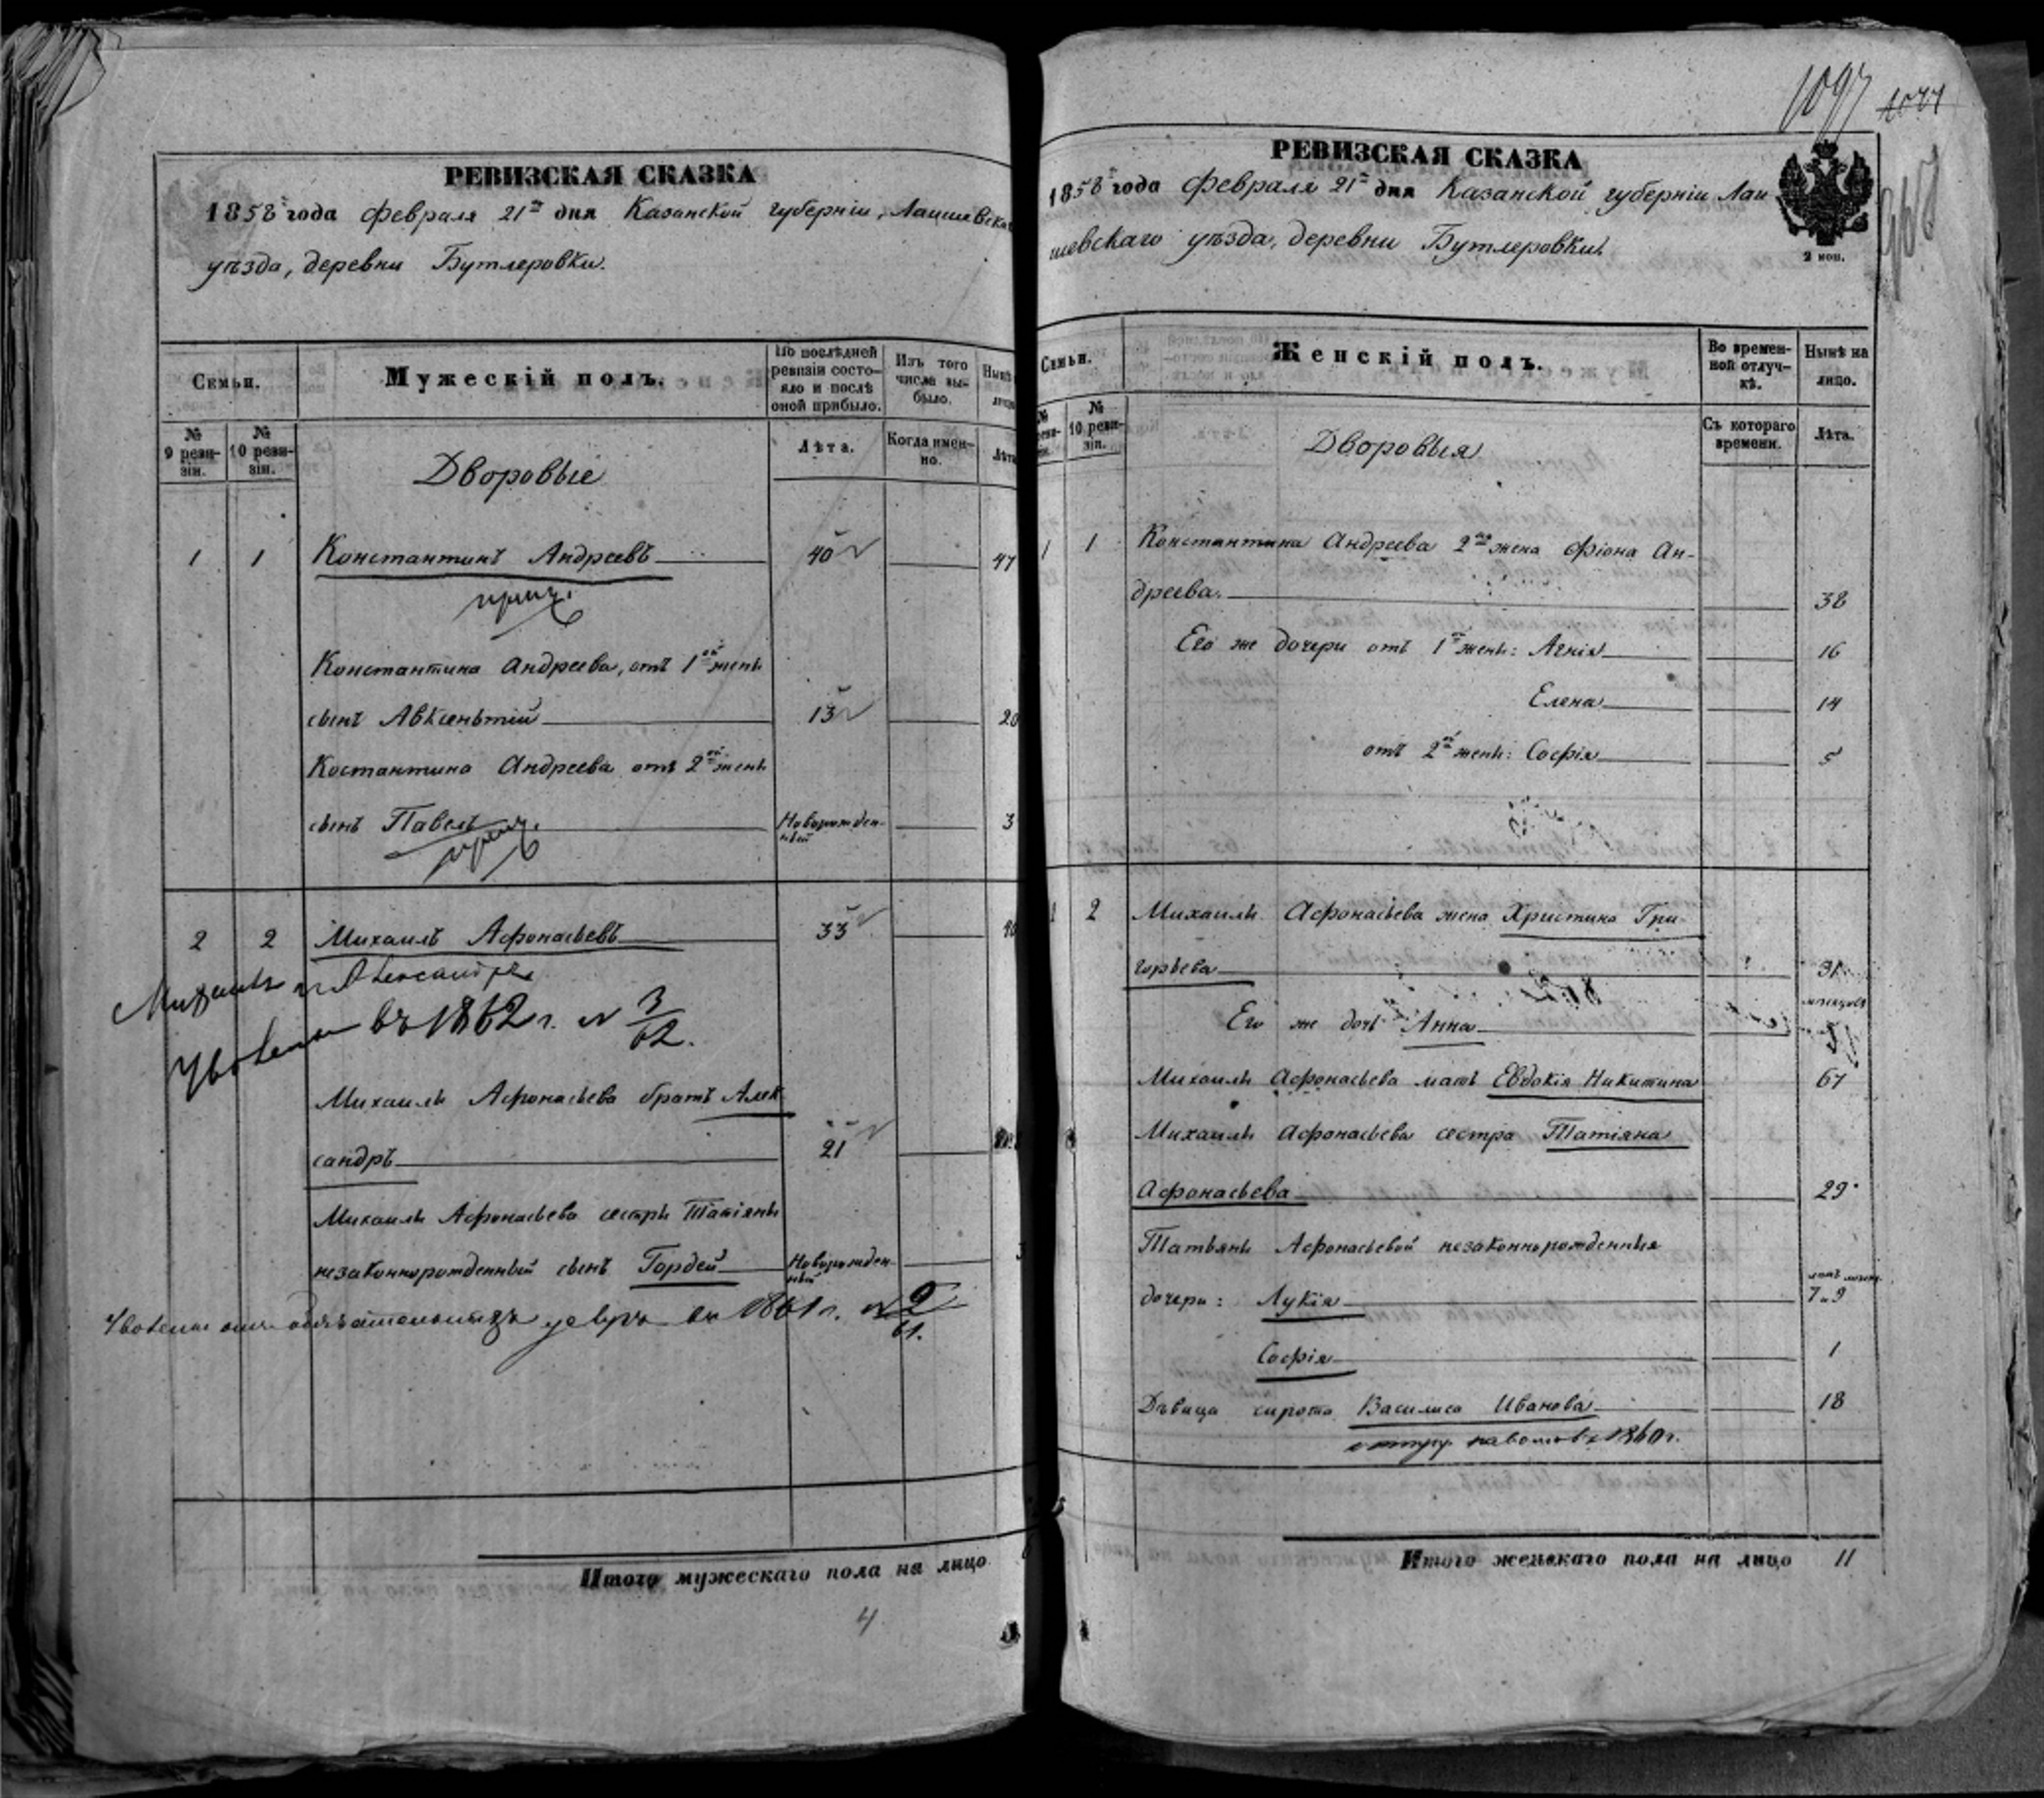 РЕВИЗСКАЯ СКАЗКА
1858 года февраля 21 дня Казанской губерніи, Лаишевска
уѣзда, деревни Бутлеровки.
Семьи.
Мужескій полъ.
По послѣдней ревизіи состояло и послѣ оной прибыло.
Изъ того числа выбыло.
Нынѣ
№ 9 ревизіи.
№ 10 ревизіи.
Лѣта.
Когда именно.
Лѣта
Дворовые
1 1 Константинъ Андреевъ 40 47
Константина Андреева, отъ 1ой жены
сынъ Авксентій 13 20
Костантина Андреева отъ 2ой жены
сынъ Павелъ Новорожденный 3
2 2 Михаилъ Афонасьевъ 33 40
Михаилъ и Александръ
Уволены въ 1862 г. № 3/62.
Михаилы Афонасьева братъ Алек
сандръ 21
Михаилы Афонасьева сестры Татіяны
незаконнорожденный сынъ Гордей Новорожденный 3
въ 1861 г. № 2/61.
Итого мужескаго пола на лицо
4
1097 1077
РЕВИЗСКАЯ СКАЗКА
1858 года февраля 21 дня Казанской губерніи Лаи
шевскаго уѣзда, деревни Бутлеровки.
2 коп.
Семьи.
Женскій полъ.
Во временной отлучкѣ.
Нынѣ на лицо.
№ 10 ревизіи.
Съ котораго времени.
Лѣта.
Дворовыя
1 1 Константина Андреева 2ая жена Фіона Ан-
дреева. 38
Его же дочери отъ 1й жены: Агнія 16
Елена 14
отъ 2й жены: Софія 5
2 Михаилы Афонасьева жена Христина Гри
горьева 31
Его же дочь Анна
Михаилы Афонасьева мать Евдокія Никитина 67
Михаилы Афонасьева сестра Татіяна
Афонасьева 29
Татьяны Афонасьевой незаконнорожденныя
дочери: Лукія 7 и 9
Софія 1
Дѣвица сирота Василиса Иванова 18
1860 г.
Итого женскаго пола на лицо 11